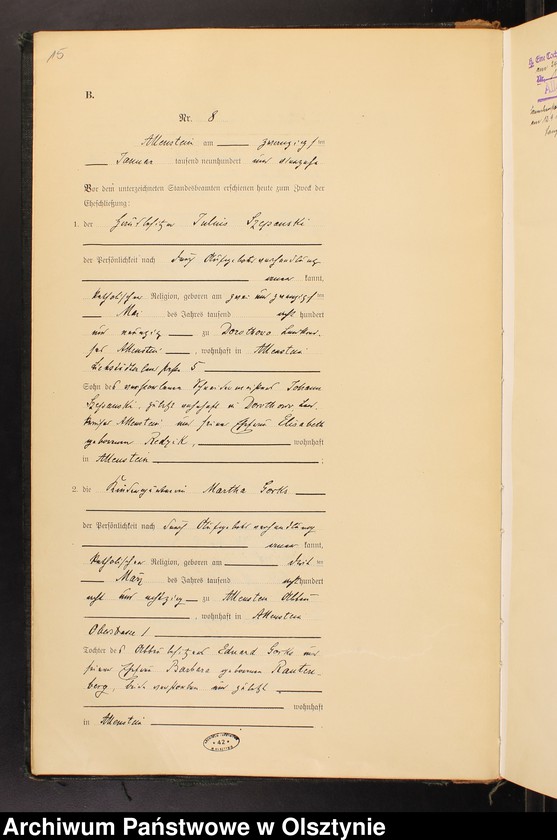 15
B.
Nr. 8
Allenstein am zwanzigsten
Januar tausend neunhundert und vierzehn
Vor dem unterzeichneten Standesbeamten erschienen heute zum Zweck der
Eheschließung:
1. der Julius Szepanski
der Persönlichkeit nach durch Aufgebotsverhandlung
kannt,
katholischer Religion, geboren am zwei und zwanzigsten
Mai des Jahres tausend acht hundert
und neunzig zu Dorothowo Landkrei-
ses Allenstein, wohnhaft in Allenstein
5
Sohn des verstorbenen Schneidermeisters Johann
Szepanski, zuletzt wohnhaft in Dorothowo Land-
kreises Allenstein und seiner Ehefrau Elisabeth
geborenen Redzik, wohnhaft
in Allenstein;
2. die Martha Gorks
der Persönlichkeit nach durch Aufgebotsverhandlung
kannt,
katholischer Religion, geboren am
März des Jahres tausend acht hundert
acht und achtzig zu Allenstein Abbau
, wohnhaft in Allenstein
Oberstrasse 1
Tochter des Abbaubesitzers Eduard Gorks und
seiner Ehefrau Barbara geborenen Rauten-
berg, beide verstorben und zuletzt
wohnhaft
in Allenstein
* 42 *
Archiwum Państwowe w Olsztynie